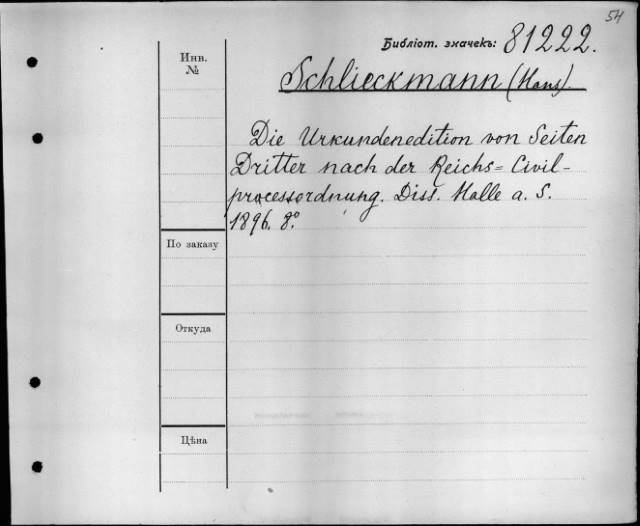 54
Библіот. значекъ: 81222.
Инв.
№
Schlieckmann (Hans).
Die Urkundenedition von Seiten
Dritter nach der Reichs=Civil-
processordnung. Diss. Halle a. S.
1896. 8°.
По заказу
Откуда
Цѣна